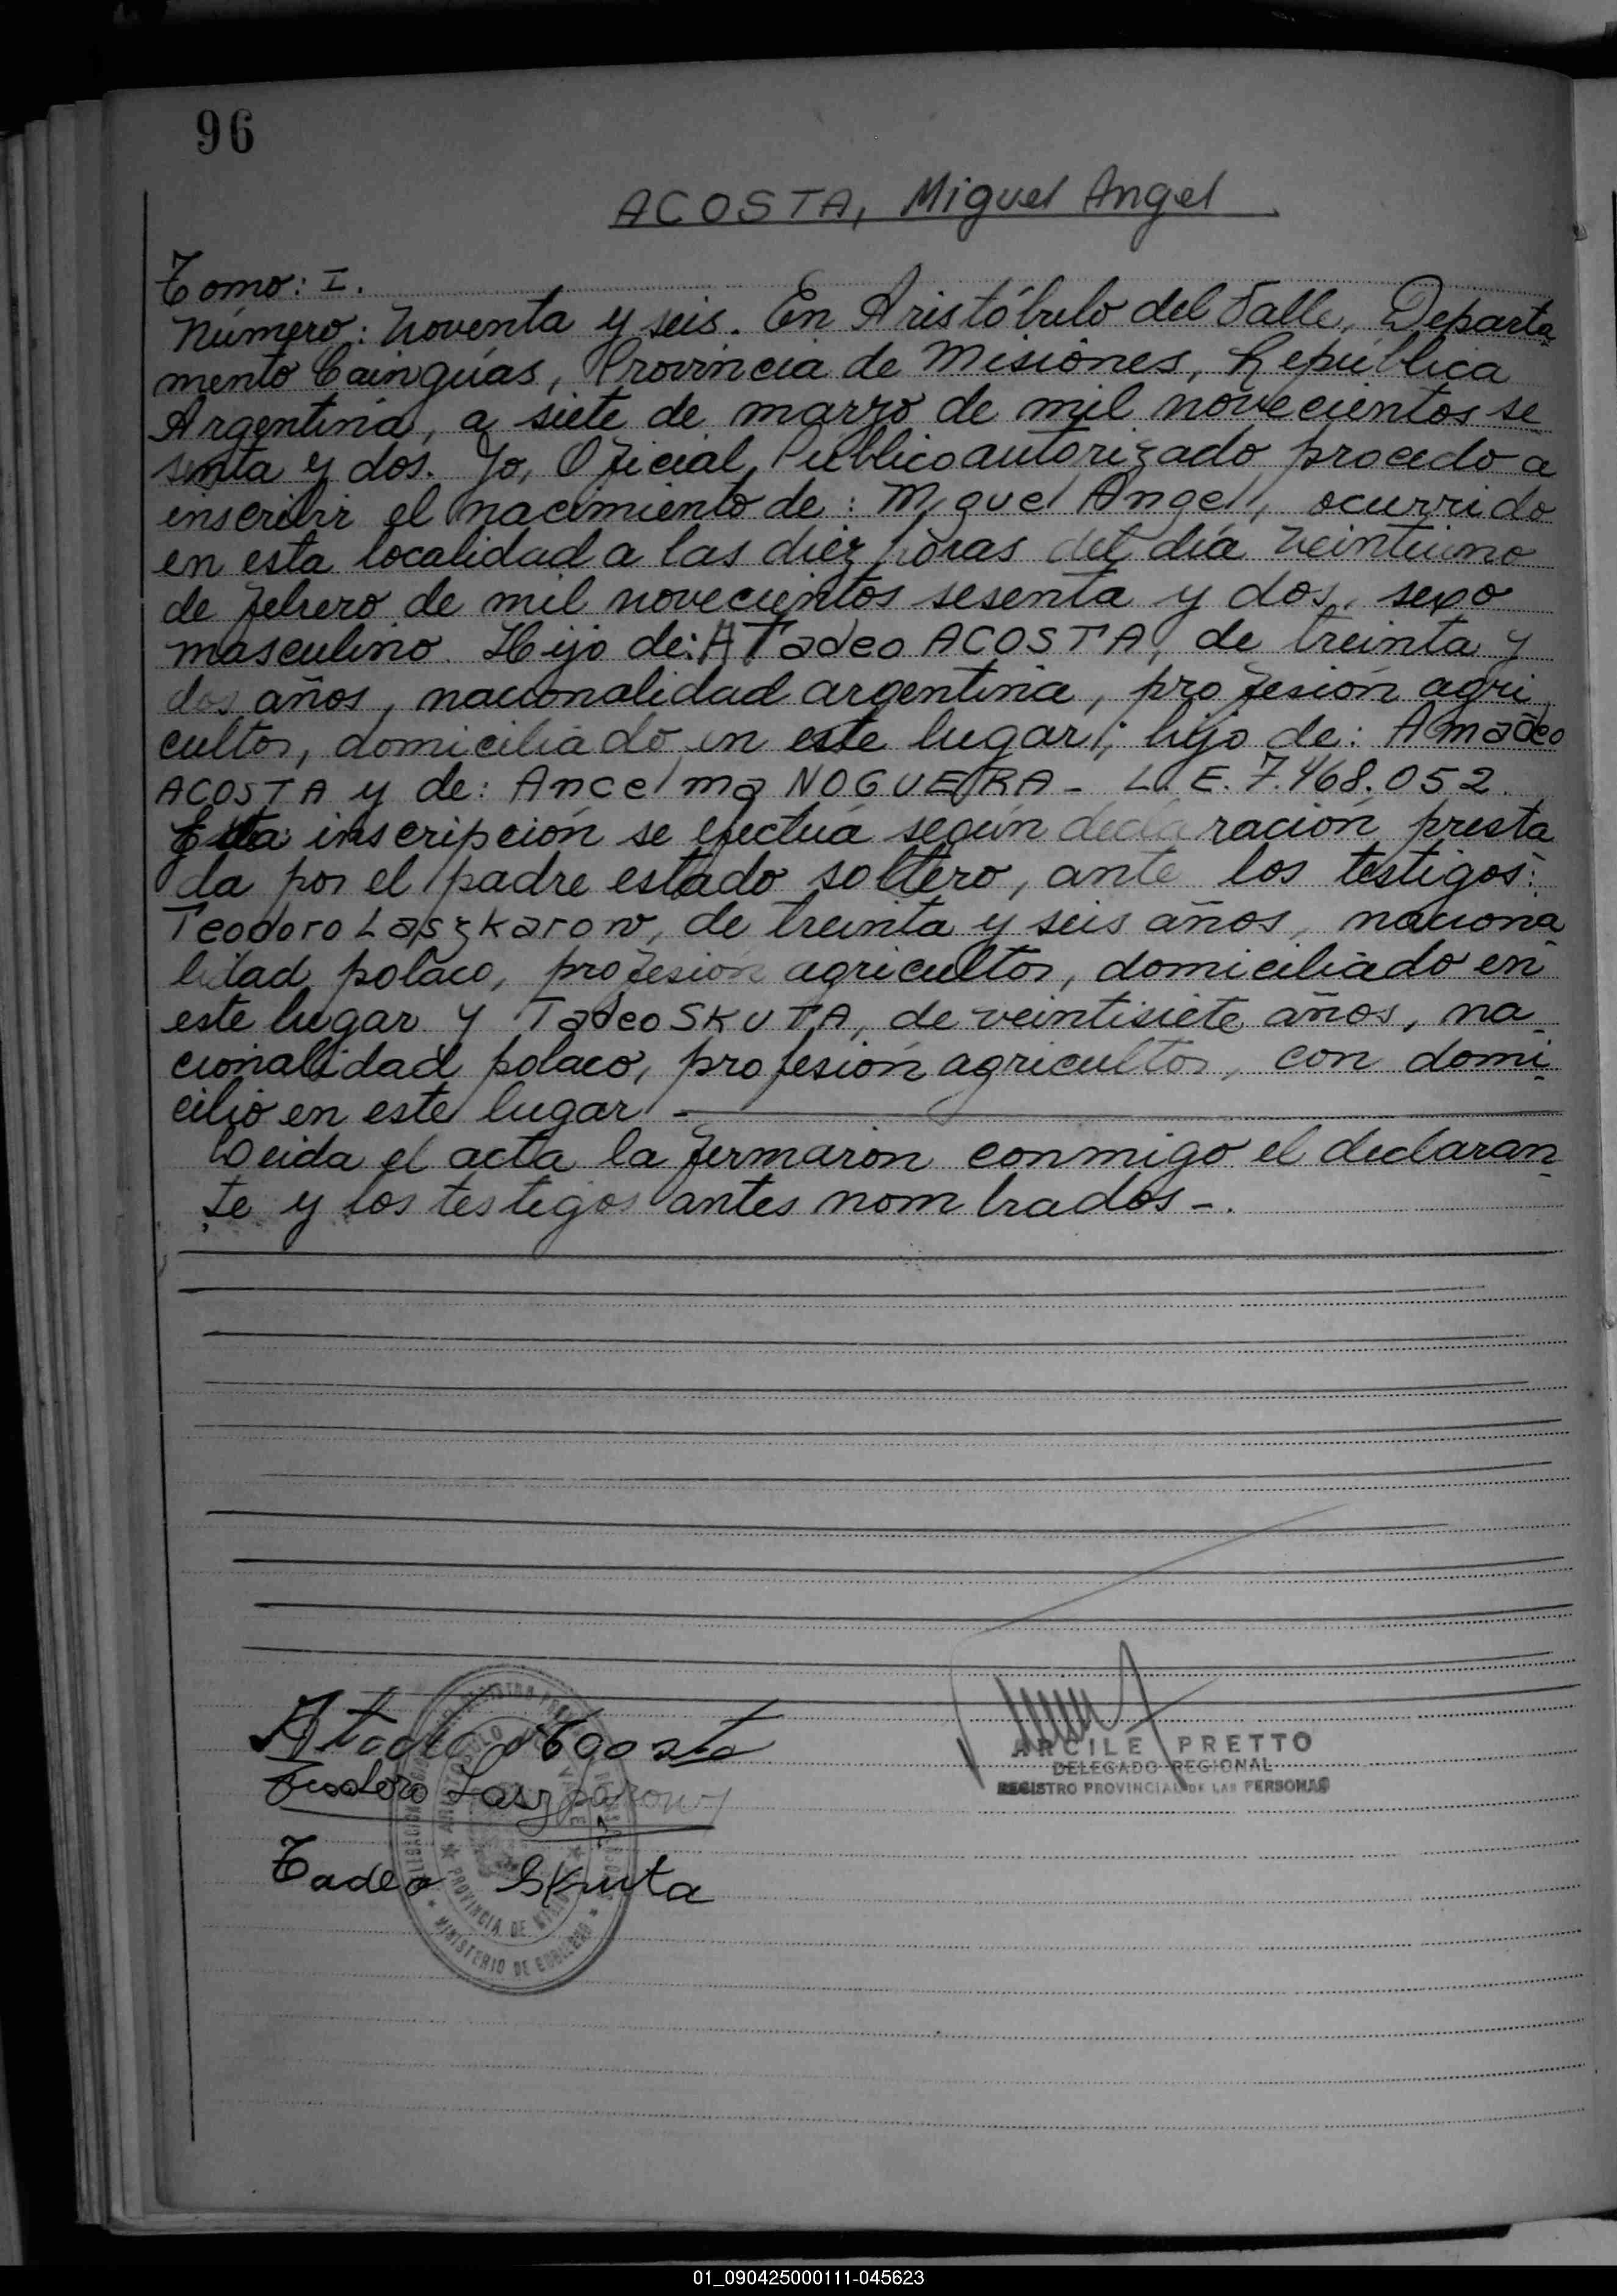 96
ACOSTA, Miguel Angel
Tomo: I.
Número: noventa y seis. En Aristóbulo del Valle, Departa
mento Cainguás, Provincia de Misiones, República
Argentina, a siete de marzo de mil novecientos se
senta y dos. Yo, Oficial Público autorizado procedo a
inscribir el nacimiento de: Miguel Angel, ocurrido
en esta localidad a las diez horas del día veintiuno
de febrero de mil novecientos sesenta y dos, sexo
masculino. Hijo de: ATadeo ACOSTA, de treinta y
dos años, nacionalidad argentina, profesión agri
cultor, domiciliado en este lugar; hijo de: Amadeo
ACOSTA y de: Ancelma NOGUERA - L. E. 7.468.052.
Esta inscripción se efectúa según declaración presta
da por el padre estado soltero, ante los testigos:
Teodoro Laszkarow, de treinta y seis años, naciona
lidad polaco, profesión agricultor, domiciliado en
este lugar y Tadeo SKUTA, de veintisiete años, na-
cionalidad polaco, profesión agricultor, con domi-
cilio en este lugar. -
Leida el acta la firmaron conmigo el declaran
te y los testigos antes nombrados -.
Atadeo Acosta
Teodoro Laszkarow
Tadeo Skuta
ARCILE PRETTO
DELEGADO REGIONAL
REGISTRO PROVINCIAL DE LAS PERSONAS
PROVINCIA DE MISIONES
MINISTERIO DE GOBIERNO
01_090425000111-045623